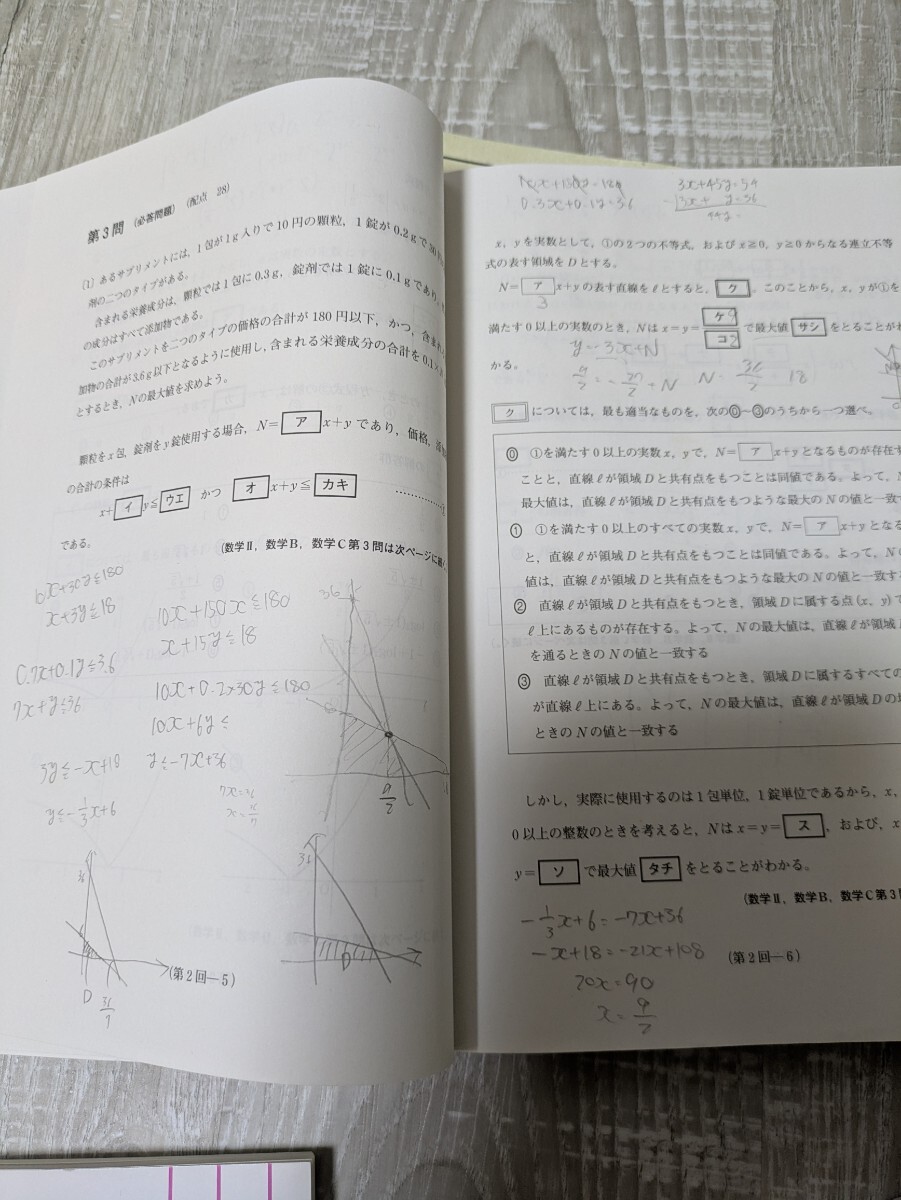 第3問 (必答問題) (配点 28)
(1) あるサプリメントには，1包が1g入りで10円の顆粒，1錠が0.2gで30円
剤の二つのタイプがある。
含まれる栄養成分は，顆粒では1包に0.3g，錠剤では1錠に0.1gであり，
の成分はすべて添加物である。
このサプリメントを二つのタイプの価格の合計が180円以下，かつ，含まれ
加物の合計が3.6g以下となるように使用し，含まれる栄養成分の合計を0.1×
とするとき，Nの最大値を求めよう。
顆粒をx包，錠剤をy錠使用する場合，N= ア x+yであり，価格，添加
の合計の条件は
x+ イ y≦ ウエ かつ オ x+y≦ カキ ……………
である。
(数学Ⅱ，数学B，数学C第3問は次ページに続く
x+3y≦18
0.7x+0.1y≦3.6
7x+y≦36
3y≦-x+18
y≦-1/3x+6
10x+150x≦180
x+15y≦18
10x+0.2×30y≦180
10x+6y≦
y≦-7x+36
7x=36
36
9/2
36
D
36/7
D
(第2回—5)
0.3x+0.1y=3.6
3x+45y=54
-)3x+ y=36
44y=
x，yを実数として，①の2つの不等式，およびx≧0，y≧0からなる連立不等
式の表す領域をDとする。
N= ア x+yの表す直線をℓとすると， ク 。このことから，x，yが①を
3
満たす0以上の実数のとき，Nはx=y= ケ9/コ2 で最大値 サシ をとることがわ
かる。
y=-3x+N
9/2=-27/2+N N=36/2=18
ク については，最も適当なものを，次の⓪〜③のうちから一つ選べ。
⓪ ①を満たす0以上の実数x，yで，N= ア x+yとなるものが存在す
ことと，直線ℓが領域Dと共有点をもつことは同値である。よって，N
最大値は，直線ℓが領域Dと共有点をもつような最大のNの値と一致
① ①を満たす0以上のすべての実数x，yで，N= ア x+yとなる
と，直線ℓが領域Dと共有点をもつことは同値である。よって，Nの
値は，直線ℓが領域Dと共有点をもつような最大のNの値と一致する
② 直線ℓが領域Dと共有点をもつとき，領域Dに属する点(x，y)で
ℓ上にあるものが存在する。よって，Nの最大値は，直線ℓが領域
を通るときのNの値と一致する
③ 直線ℓが領域Dと共有点をもつとき，領域Dに属するすべての
が直線ℓ上にある。よって，Nの最大値は，直線ℓが領域Dの
ときのNの値と一致する
しかし，実際に使用するのは1包単位，1錠単位であるから，x，
0以上の整数のときを考えると，Nはx=y= ス ，および，x
y= ソ で最大値 タチ をとることがわかる。
(数学Ⅱ，数学B，数学C第3
-1/3x+6=-7x+36
-x+18=-21x+108
20x=90
x=9/2
(第2回—6)